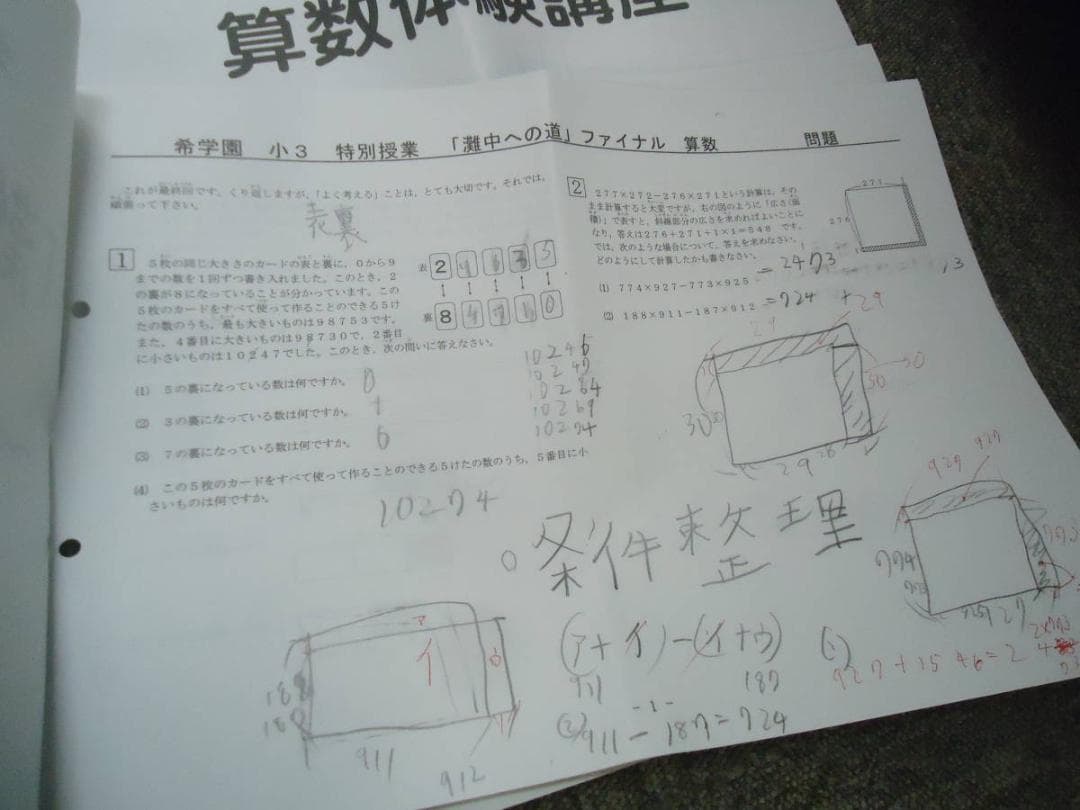 算数体験講座
希学園 小3 特別授業 「灘中への道」ファイナル 算数 問題
これが最終回です。くり返しますが、「よく考える」ことは、とても大切です。それでは、
頑張って下さい。
表裏
1
5枚の同じ大きさのカードの表と裏に、0から9
までの数を1回ずつ書き入れました。このとき、2
の裏が8になっていることが分かっています。この
5枚のカードをすべて使って作ることのできる5け
たの数のうち、最も大きいものは98753です。
また、4番目に大きいものは98730で、2番目
に小さいものは10247でした。このとき、次の問いに答えなさい。
表 2
裏 8
(1) 5の裏になっている数は何ですか。 0
(2) 3の裏になっている数は何ですか。
(3) 7の裏になっている数は何ですか。 6
10246
10247
10264
10269
10274
(4) この5枚のカードをすべて使って作ることのできる5けたの数のうち、5番目に小
さいものは何ですか。
10274
2
277×272−276×271という計算は、その
まま計算すると大変ですが、右の図のように「広さ(面
積)」で表すと、斜線部分の広さを求めればよいことに
なり、答えは276+271+1×1=548 です。
では、次のような場合について、答えを求めなさい。
どのようにして計算したかも書きなさい。
271
276
1
(1) 774×927−773×925 = 2473
(2) 188×911−187×912 = 724
29
29
30
30
929
927
774
条件整理
(ア+イ)−(イ+ウ)
911 187
(2) 911 − 187 = 724
-1-
ア
イ
ウ
188
911
912